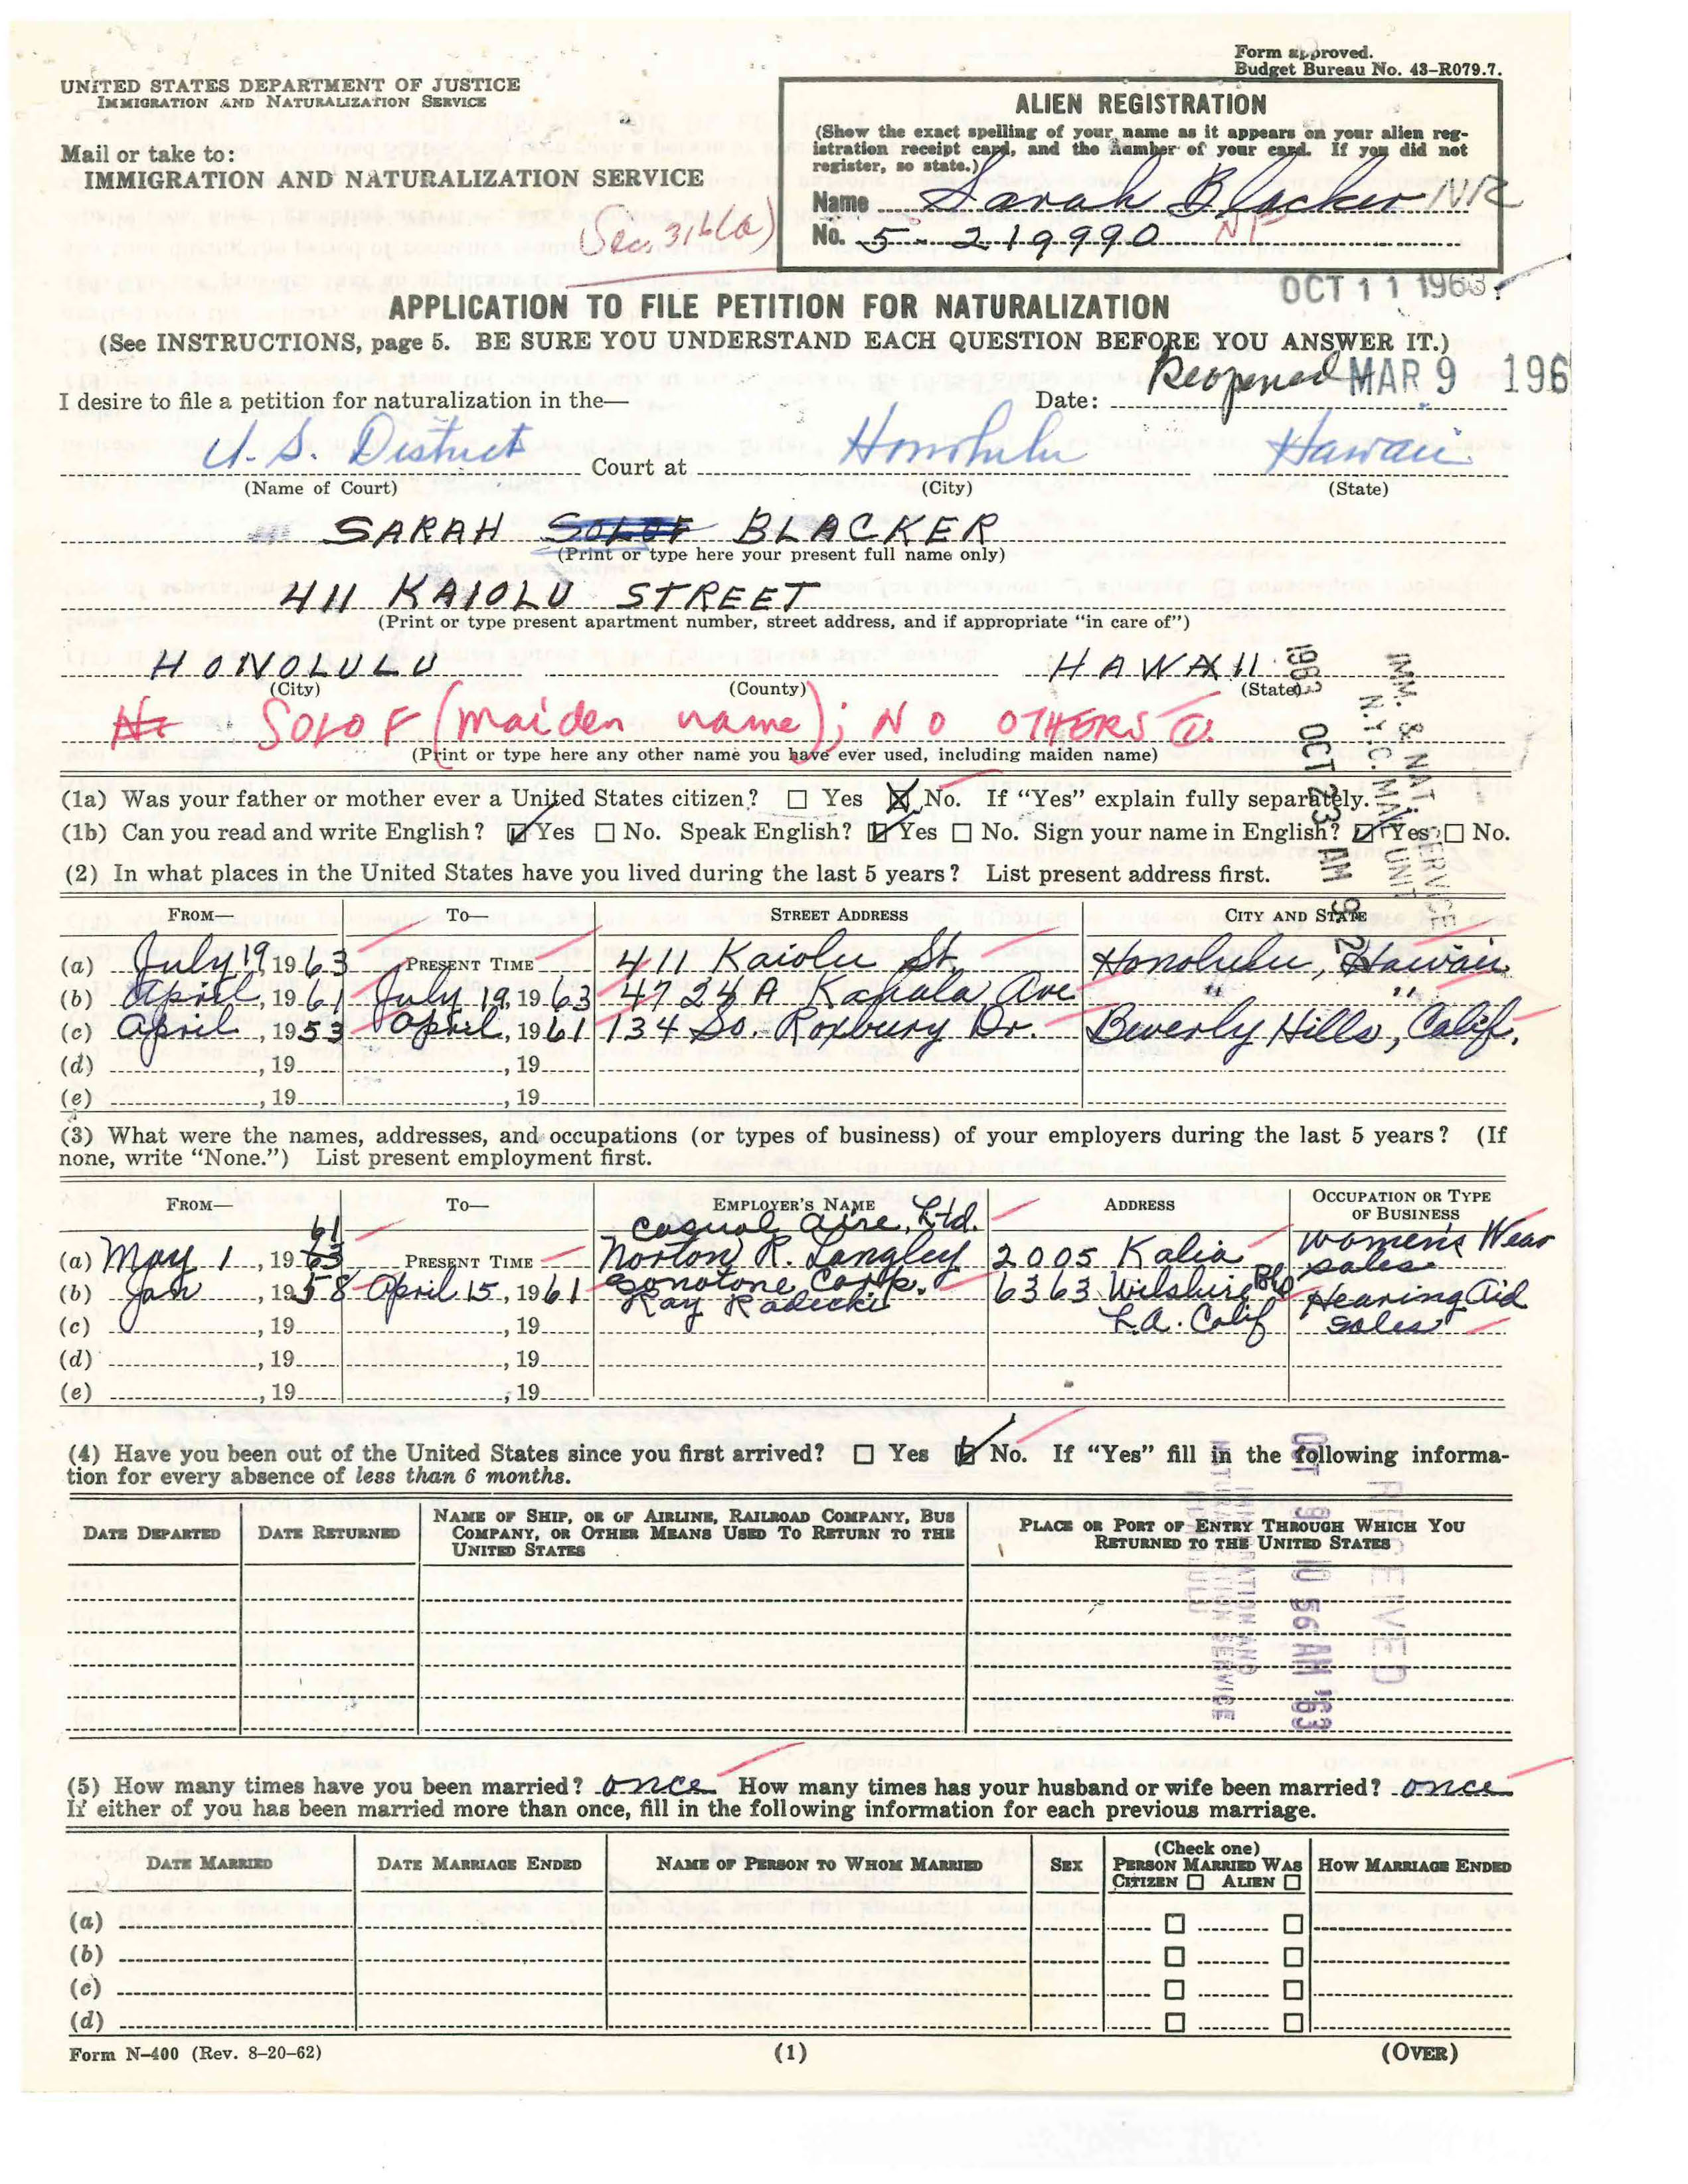 Form approved.
Budget Bureau No. 43-R079.7.
UNITED STATES DEPARTMENT OF JUSTICE
IMMIGRATION AND NATURALIZATION SERVICE
Mail or take to:
IMMIGRATION AND NATURALIZATION SERVICE
Sec. 316(a)
ALIEN REGISTRATION
(Show the exact spelling of your name as it appears on your alien reg-
istration receipt card, and the number of your card. If you did not
register, so state.)
Name Sarah Blacker NR
No. 5-219990 NF
OCT 11 1963
APPLICATION TO FILE PETITION FOR NATURALIZATION
(See INSTRUCTIONS, page 5. BE SURE YOU UNDERSTAND EACH QUESTION BEFORE YOU ANSWER IT.)
Reopened MAR 9 196
I desire to file a petition for naturalization in the— Date:
U.S. District Court at Honolulu Hawaii
(Name of Court) (City) (State)
SARAH SOLOF BLACKER
(Print or type here your present full name only)
411 KAIOLU STREET
(Print or type present apartment number, street address, and if appropriate "in care of")
HONOLULU HAWAII
(City) (County) (State)
SOLOF (maiden name); NO OTHERS
(Print or type here any other name you have ever used, including maiden name)
IMM. & NAT SERVICE
N.Y.C. MAIL UNIT
1963 OCT 23 AM 9
(1a) Was your father or mother ever a United States citizen? ☐ Yes ☒ No. If "Yes" explain fully separately.
(1b) Can you read and write English? ☑ Yes ☐ No. Speak English? ☑ Yes ☐ No. Sign your name in English? ☑ Yes ☐ No.
(2) In what places in the United States have you lived during the last 5 years? List present address first.
FROM— TO— STREET ADDRESS CITY AND STATE
(a) July 19, 1963 PRESENT TIME 411 Kaiolu St. Honolulu, Hawaii
(b) April, 1961 July 19, 1963 4724A Kahala Ave " "
(c) April, 1953 April, 1961 134 So. Roxbury Dr. Beverly Hills, Calif.
(d) , 19 , 19
(e) , 19 , 19
(3) What were the names, addresses, and occupations (or types of business) of your employers during the last 5 years? (If
none, write "None.") List present employment first.
FROM— TO— EMPLOYER'S NAME ADDRESS OCCUPATION OR TYPE OF BUSINESS
Casual Aire, Ltd.
(a) May 1, 19 63 61 PRESENT TIME Norton R. Langley 2005 Kalia Women's Wear Sales
(b) Jan, 1958 April 15, 1961 Sonotone Corp. 6363 Wilshire Blvd Hearing Aid
Ray Radecki
(c) , 19 , 19 L.A. Calif Sales
(d) , 19 , 19
(e) , 19 , 19
(4) Have you been out of the United States since you first arrived? ☐ Yes ☑ No. If "Yes" fill in the following informa-
tion for every absence of less than 6 months.
DATE DEPARTED DATE RETURNED NAME OF SHIP, OR OF AIRLINE, RAILROAD COMPANY, BUS COMPANY, OR OTHER MEANS USED TO RETURN TO THE UNITED STATES PLACE OR PORT OF ENTRY THROUGH WHICH YOU RETURNED TO THE UNITED STATES
RECEIVED
OCT 9 10 56 AM '63
IMMIGRATION AND
NATURALIZATION SERVICE
HONOLULU
(5) How many times have you been married? once How many times has your husband or wife been married? once
If either of you has been married more than once, fill in the following information for each previous marriage.
DATE MARRIED DATE MARRIAGE ENDED NAME OF PERSON TO WHOM MARRIED SEX (Check one) PERSON MARRIED WAS CITIZEN ☐ ALIEN ☐ HOW MARRIAGE ENDED
(a) ☐ ☐
(b) ☐ ☐
(c) ☐ ☐
(d) ☐ ☐
Form N-400 (Rev. 8-20-62) (1) (OVER)